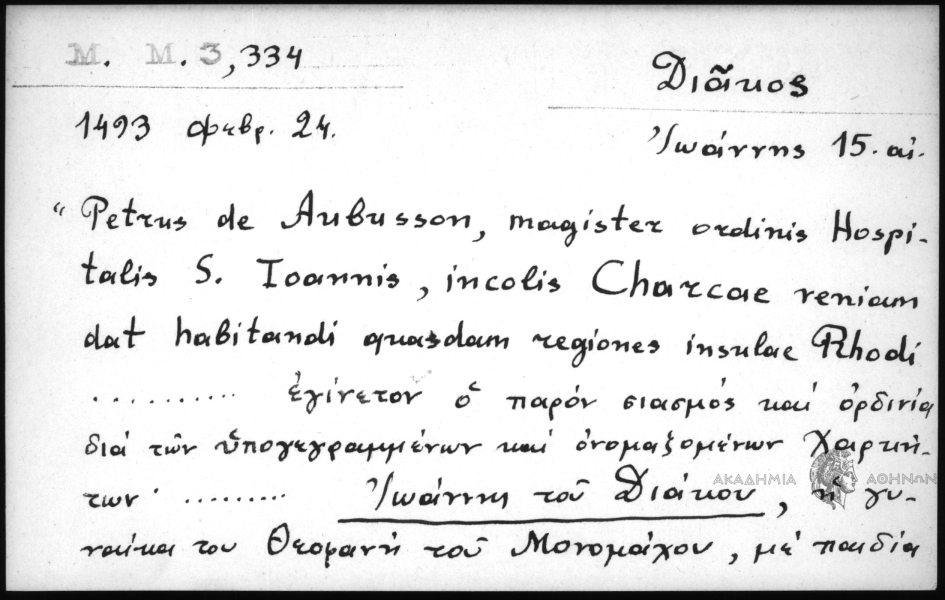 M. M. 3, 334
Διᾶκος
1493 φεβρ. 24.
Ἰωάννης 15. αἰ.
“ Petrus de Aubusson, magister ordinis Hospi-
talis S. Ioannis, incolis Charcae veniam
dat habitandi quasdam regiones insulae Rhodi
.......... ἐγίνετον ὁ παρόν σιασμός καί ὀρδινία
διά τῶν ὑπογεγραμμένων καί ὀνομαζομένων Χαρκή-
των· ......... Ἰωάννης τοῦ Διάκου, ἡ γυ-
ναίκα του Θεοφανή τοῦ Μονομάχου, μέ παιδία
ΑΚΑΔΗΜΙΑ ΑΘΗΝΩΝ